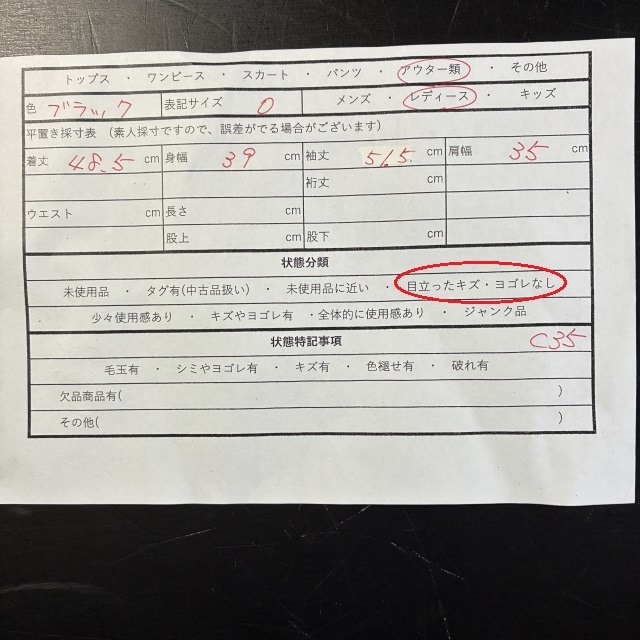 トップス ・ ワンピース ・ スカート ・ パンツ ・ アウター類 ・ その他
色 ブラック 表記サイズ 0 メンズ ・ レディース ・ キッズ
平置き採寸表 (素人採寸ですので、誤差がでる場合がございます)
着丈 48.5 cm 身幅 39 cm 袖丈 51.5 cm 肩幅 35 cm
裄丈 cm
ウエスト cm 長さ cm
股上 cm 股下 cm
状態分類
未使用品 ・ タグ有(中古品扱い) ・ 未使用品に近い ・ 目立ったキズ・ヨゴレなし
少々使用感あり ・ キズやヨゴレ有 ・全体的に使用感あり ・ ジャンク品
状態特記事項 C35
毛玉有 ・ シミやヨゴレ有 ・ キズ有 ・ 色褪せ有 ・ 破れ有
欠品商品有( )
その他( )